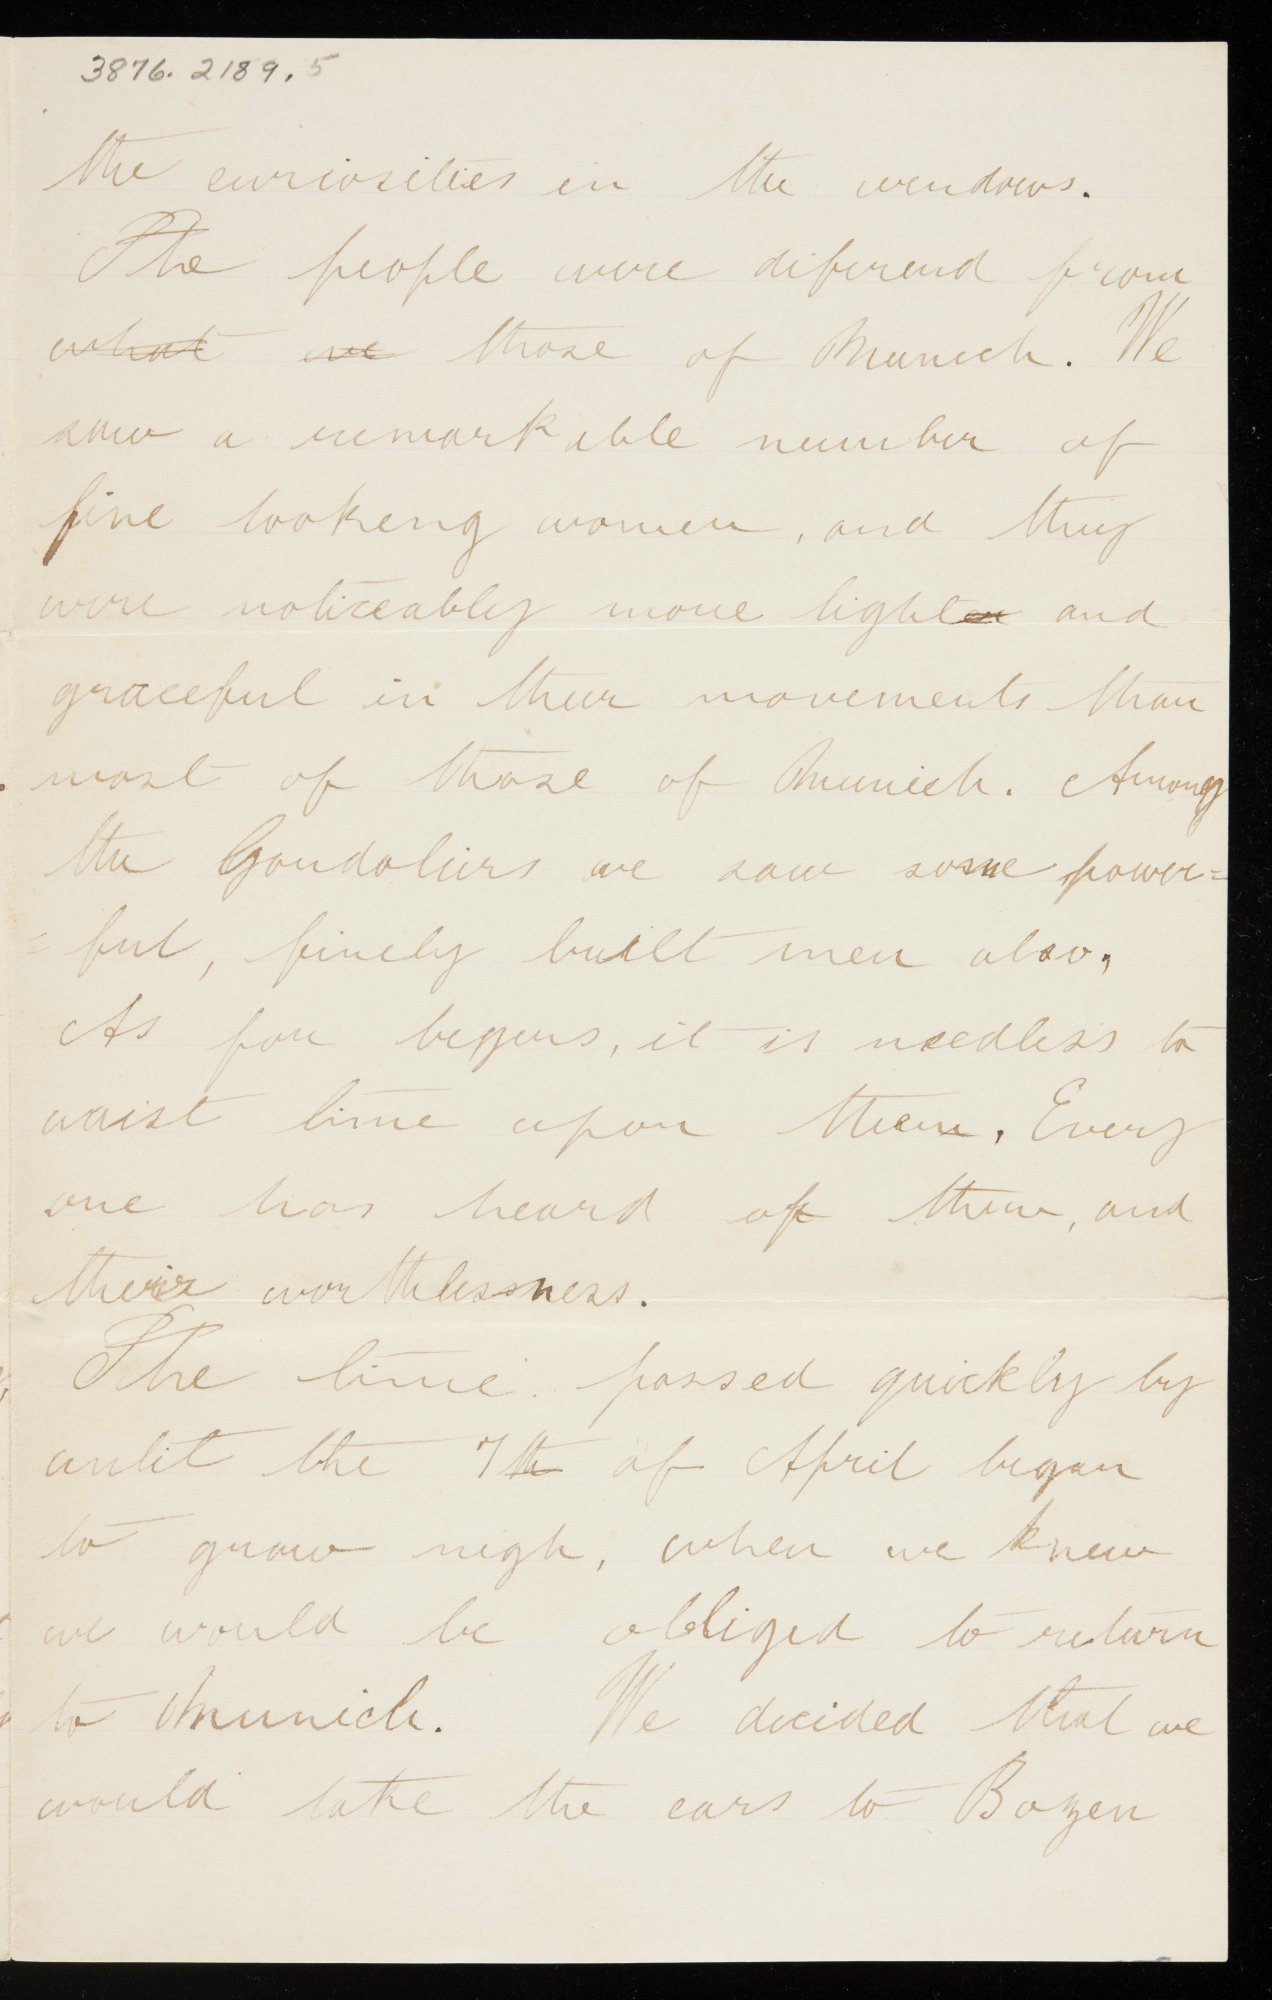 3876.2189.5
the curiosities in the windows.
The people were diferend from
what we those of Munich. We
saw a remarkable number of
fine looking women, and they
were noticeably more lighter and
graceful in their movements than
most of those of Munich. Among
the Gondoliers we saw some power=
=ful, finely built men also,
As for beggers, it is needless to
waist time upon them. Every
one has heard of them, and
their worthlessness.
The time passed quickly by
until the 7th of April began
to grow nigh, when we knew
we would be obliged to return
to Munich. We decided that we
would take the cars to Bozen